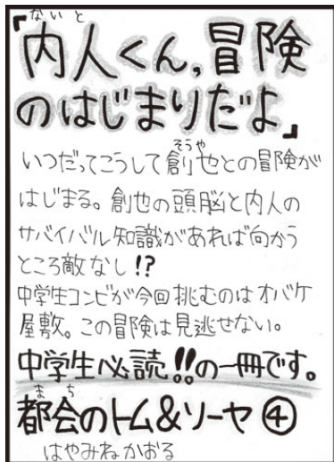 『内人くん,冒険
ないと
のはじまりだよ』
いつだってこうして創也との冒険が
そうや
はじまる。創也の頭脳と内人の
サバイバル知識があれば向かう
ところ敵なし!?
中学生コンビが今回挑むのはオバケ
屋敷。この冒険は見逃せない。
中学生必読!!の一冊です。
都会のトム&ソーヤ④
まち
はやみねかおる